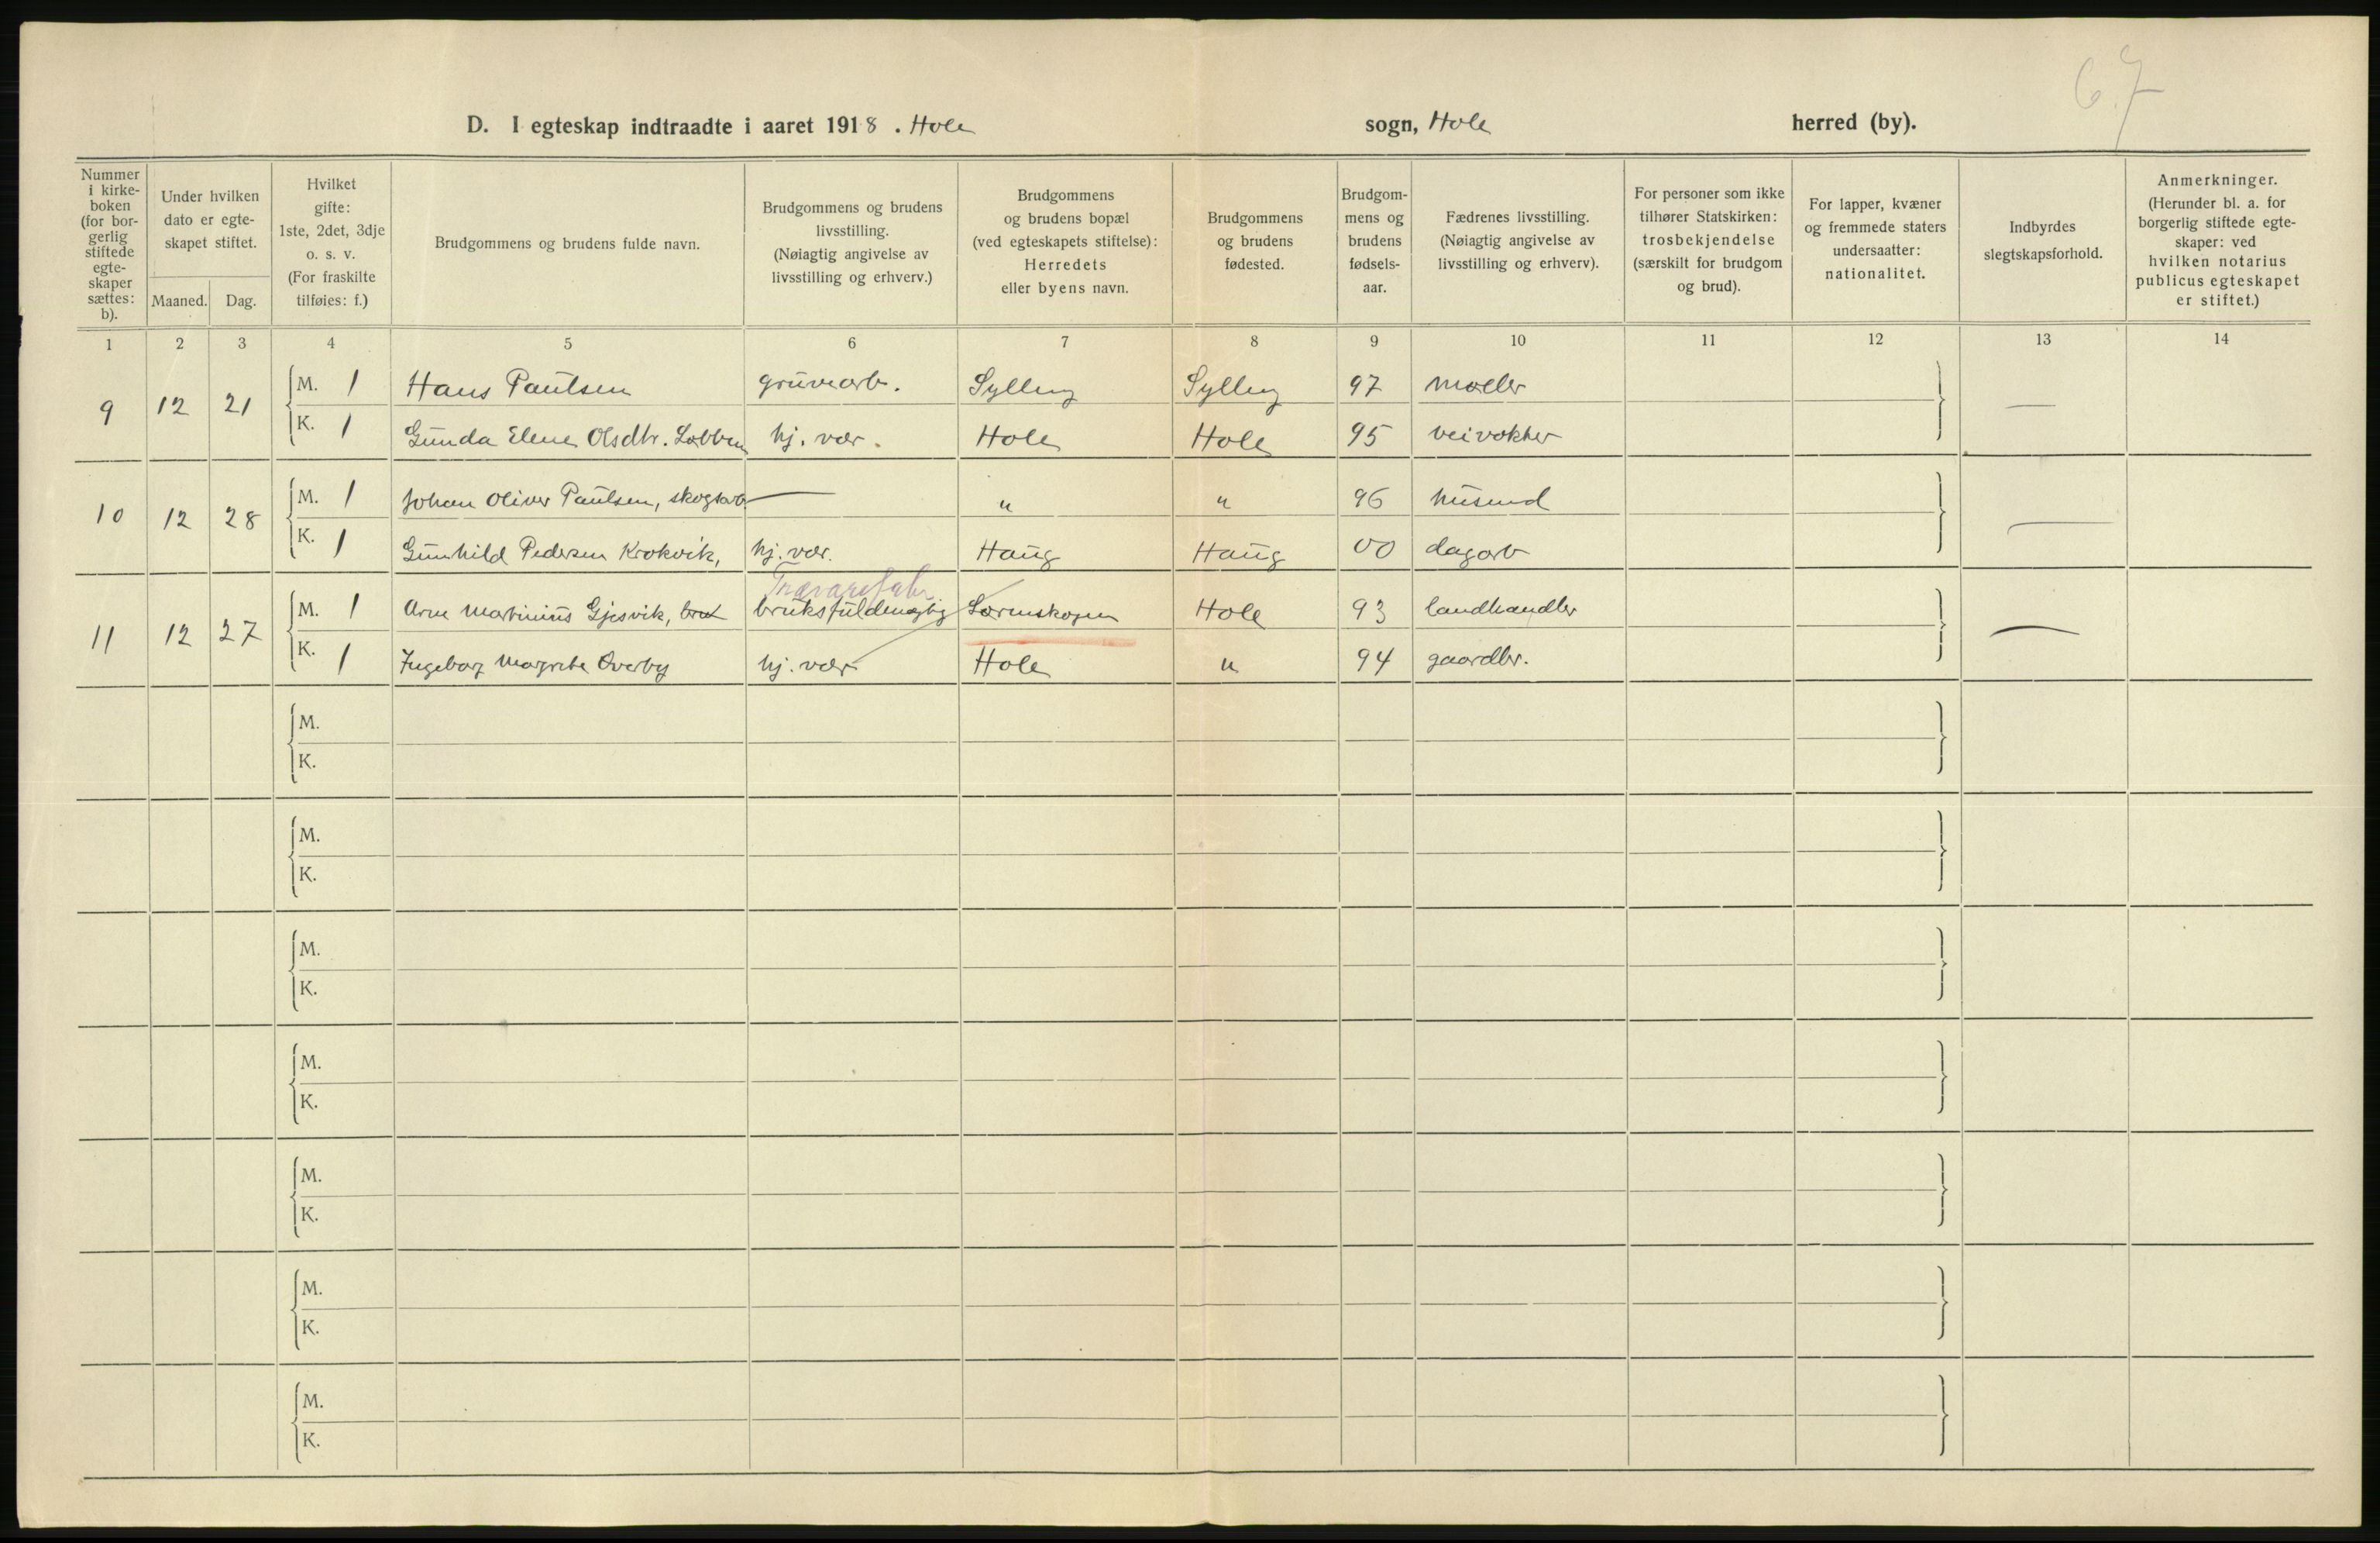 67
D. I egteskap indtraadte i aaret 1918. Hole sogn, Hole herred (by).
Nummer i kirke- boken (for bor- gerlig stiftede egte- skaper sættes: b).
Under hvilken dato er egte- skapet stiftet.
Maaned. Dag.
Hvilket gifte: 1ste, 2det, 3dje o. s. v. (For fraskilte tilføies: f.)
Brudgommens og brudens fulde navn.
Brudgommens og brudens livsstilling. (Nøiagtig angivelse av livsstilling og erhverv.)
Brudgommens og brudens bopæl (ved egteskapets stiftelse): Herredets eller byens navn.
Brudgommens og brudens fødested.
Brudgom- mens og brudens fødsels- aar.
Fædrenes livsstilling. (Nøiagtig angivelse av livsstilling og erhverv).
For personer som ikke tilhører Statskirken: trosbekjendelse (særskilt for brudgom og brud).
For lapper, kvæner og fremmede staters undersaatter: nationalitet.
Indbyrdes slegtskapsforhold.
Anmerkninger. (Herunder bl. a. for borgerlig stiftede egte- skaper: ved hvilken notarius publicus egteskapet er stiftet.)
1 2 3 4 5 6 7 8 9 10 11 12 13 14
9 12 21 M. 1 Hans Paulsen gruvearb. Sylling Sylling 97 møller —
K. 1 Gunda Elene Olsdtr. Løbben hj. vær. Hole Hole 95 veivokter
10 12 28 M. 1 Johan Oliver Paulsen, skogsarb. — " " 96 husmd —
K. 1 Gunhild Pedersen Krokvik, hj. vær. Haug Haug 00 dagarb
Trævarefabr.
11 12 27 M. 1 Arne Martinius Gjesvik, bruksfuldmægtig Lørenskogen Hole 93 landhandler —
K. 1 Ingeborg Margrethe Øverby hj. vær Hole " 94 gaardbr.
M.
K.
M.
K.
M.
K.
M.
K.
M.
K.
M.
K.
M.
K.